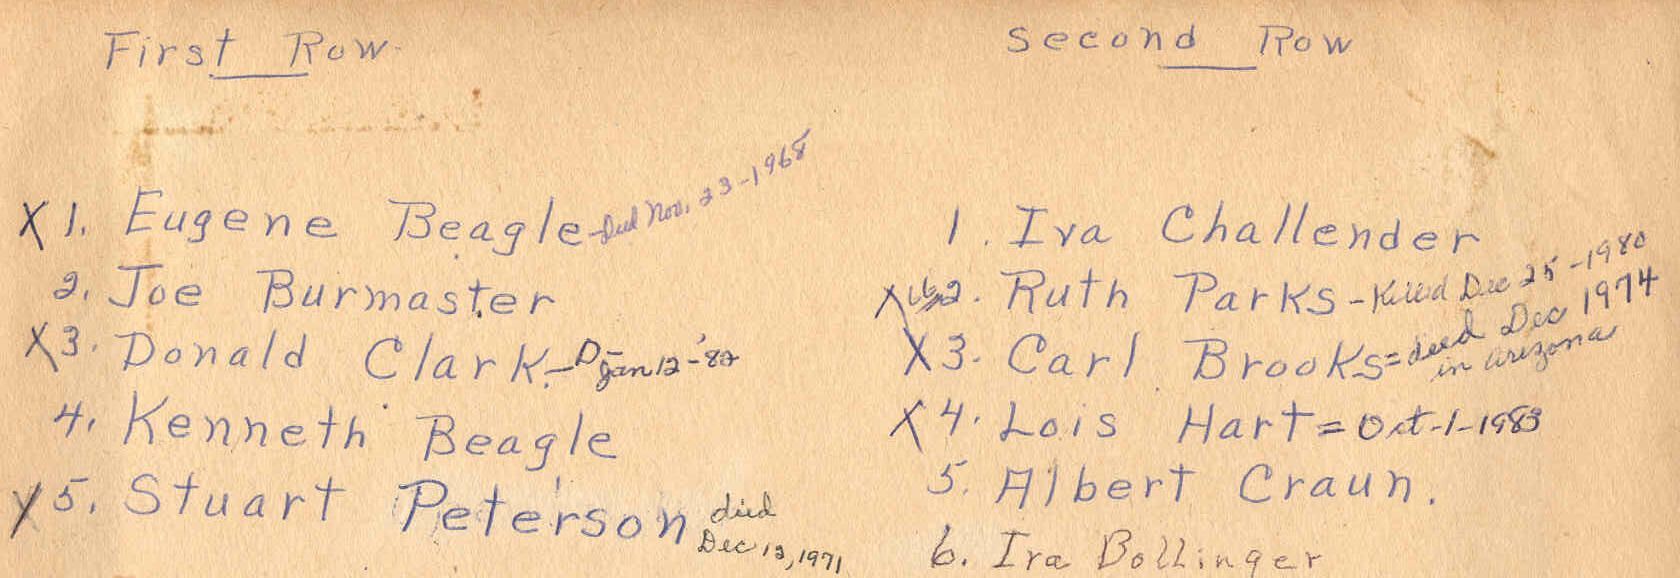 First Row
X 1. Eugene Beagle - Died Nov. 23-1968
2. Joe Burmaster
X 3. Donald Clark - D Jan 12-'82
4. Kenneth Beagle
X 5. Stuart Peterson died
Dec 12, 1971
Second Row
1. Iva Challender
X 2. Ruth Parks - Killed Dec 25-1980
X 3. Carl Brooks = died Dec 1974
in Arizona
X 4. Lois Hart = Oct-1-1983
5. Albert Craun.
6. Ira Bollinger